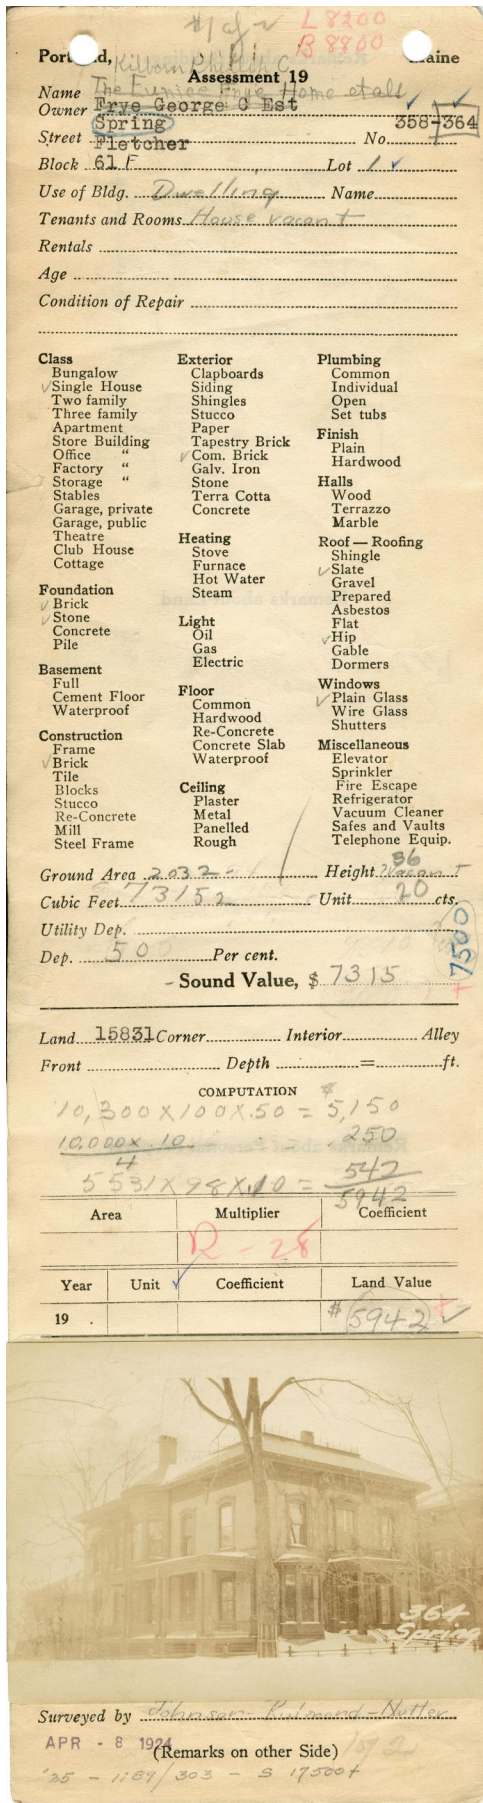 #1 of 2 L 8200
B 8800
Portland, Maine
Kilborn Philip C
Assessment 19
Name The Eunice Frye Home etals
Owner Frye George C Est
Spring 358-364
Street Fletcher No.
Block 61 F Lot 1
Use of Bldg. Dwelling Name
Tenants and Rooms House vacant
Rentals
Age
Condition of Repair
Class
Bungalow
Single House
Two family
Three family
Apartment
Store Building
Office "
Factory "
Storage "
Stables
Garage, private
Garage, public
Theatre
Club House
Cottage
Foundation
Brick
Stone
Concrete
Pile
Basement
Full
Cement Floor
Waterproof
Construction
Frame
Brick
Tile
Blocks
Stucco
Re-Concrete
Mill
Steel Frame
Exterior
Clapboards
Siding
Shingles
Stucco
Paper
Tapestry Brick
Com. Brick
Galv. Iron
Stone
Terra Cotta
Concrete
Heating
Stove
Furnace
Hot Water
Steam
Light
Oil
Gas
Electric
Floor
Common
Hardwood
Re-Concrete
Concrete Slab
Waterproof
Ceiling
Plaster
Metal
Panelled
Rough
Plumbing
Common
Individual
Open
Set tubs
Finish
Plain
Hardwood
Halls
Wood
Terrazzo
Marble
Roof — Roofing
Shingle
Slate
Gravel
Prepared
Asbestos
Flat
Hip
Gable
Dormers
Windows
Plain Glass
Wire Glass
Shutters
Miscellaneous
Elevator
Sprinkler
Fire Escape
Refrigerator
Vacuum Cleaner
Safes and Vaults
Telephone Equip.
Ground Area 2032 Height 36
Vacant
Cubic Feet 73152 Unit 20 cts.
Utility Dep.
Dep. 50 Per cent.
7500
Sound Value, $ 7315
Land 15831 Corner Interior Alley
Front Depth = ft.
COMPUTATION
10,300 X 100 X .50 = $ 5,150
10,000 X .10 250
4
5531 X 98 X .10 = 542
5942
Area Multiplier Coefficient
R - 28
Year Unit Coefficient Land Value
19 . $ 5942
364
Spring
Surveyed by Johnson - Ruimond - Nutter
APR - 8 1924
(Remarks on other Side) 1 of 2
'25 - 1189/303 - S 17500+